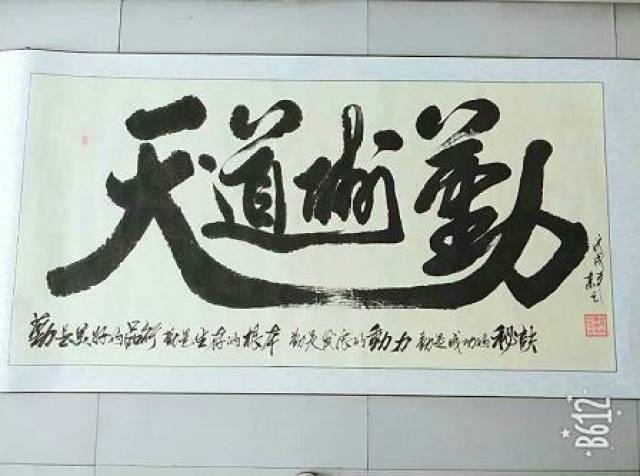 天道酬勤
勤是最好的品行 勤是生存的根本 勤是发展的動力 勤是成功的秘訣
戊戌年
B612